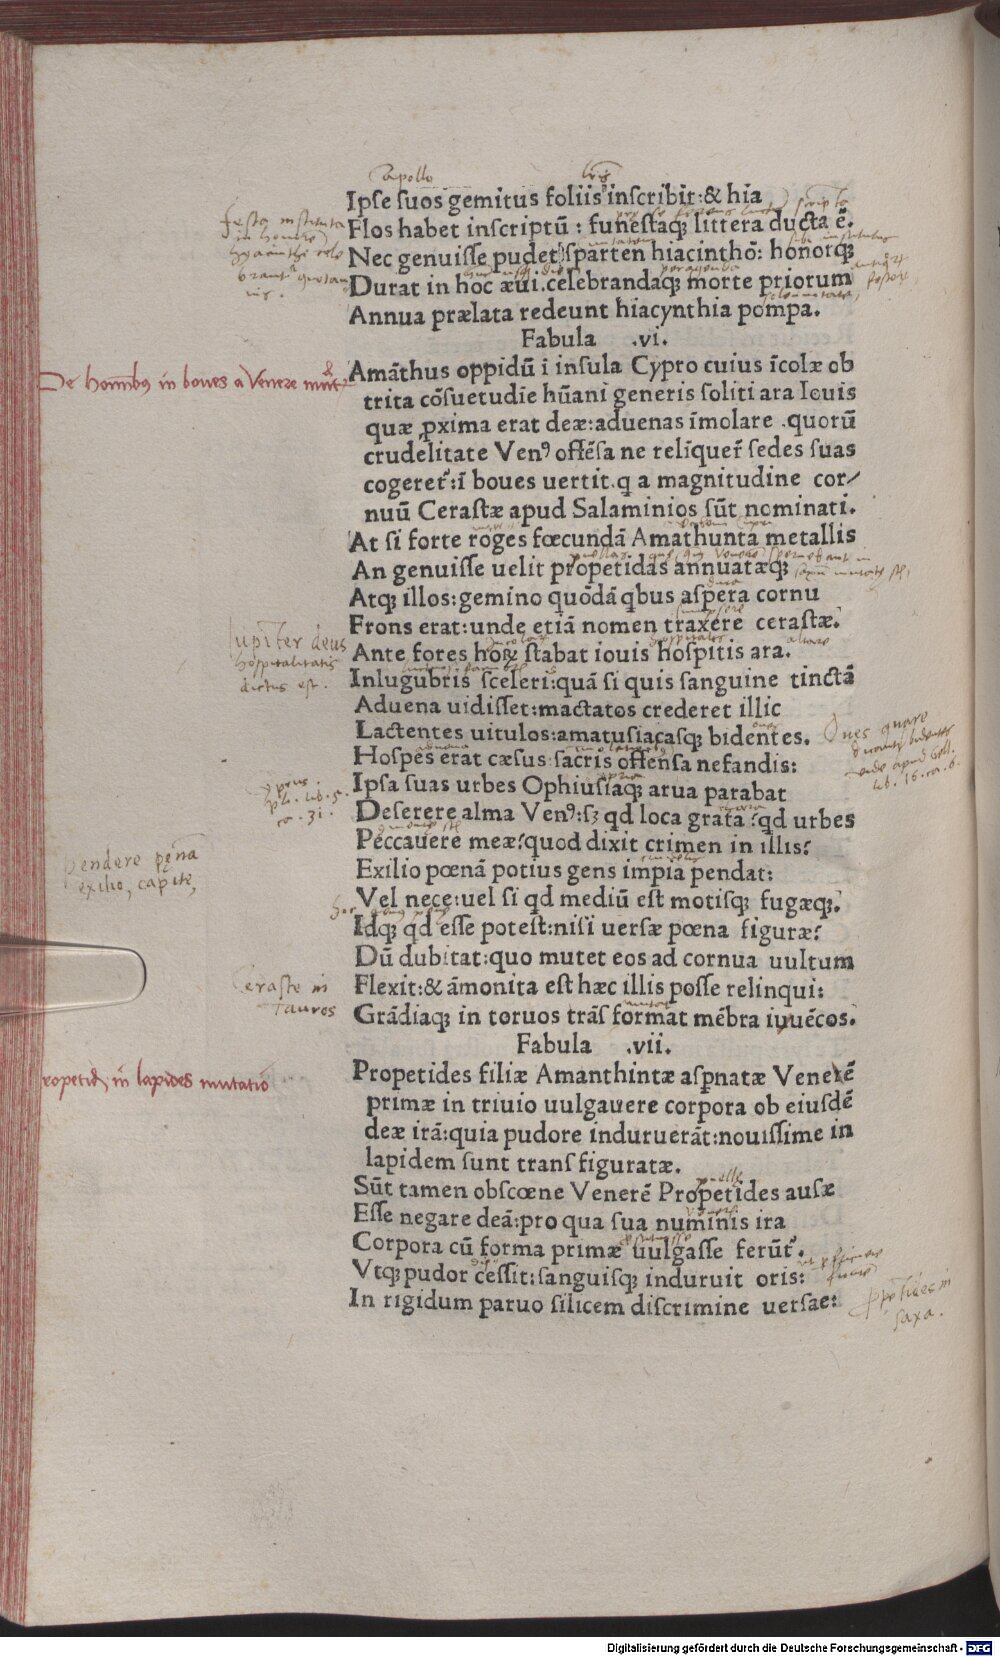 apollo
Ipse suos gemitus foliis inscribit:& hia
Flos habet inscriptū : funestaq; littera ducta ē.
Nec genuisse pudet sparten hiacinthō: honorq;
Durat in hoc æui.celebrandaq; morte priorum
Annua prælata redeunt hiacynthia pompa.
Festa instituta
in honorē
hyacinthi cele
Fabula .vi.
De hominibus in boues a Venere
Amāthus oppidū ī insula Cypro cuius īcolæ ob
trita cōsuetudīe hūani generis soliti ara Iouis
quæ ꝓxima erat deæ:aduenas īmolare .quorū
crudelitate Venꝰ offēsa ne relīqueret̄ sedes suas
cogeret̄:ī boues uertit.q a magnitudine cor/
nuū Cerastæ apud Salaminios sūt nominati.
At si forte roges fœcundā Amathunta metallis
An genuisse uelit propetidas annuatæq;
Atq; illos:gemino quōdā qbus aspera cornu
Frons erat:unde etiā nomen traxere cerastæ.
Ante fores hoꝝ stabat iouis hospitis ara.
Inlugubris sceleri:quā si quis sanguine tinctā
Aduena uidisset:mactatos crederet illic
Lactentes uitulos:amatusiacasq; bidentes.
Hospes erat cæsus:sacris offensa nefandis:
Ipsa suas urbes Ophiusiaq; arua parabat
Deserere alma Venꝰ:sꝫ qd loca grata ?qd urbes
Peccauere meæ?quod dixit crimen in illis?
Exilio pœnā potius gens impia pendat:
Vel nece:uel si qd mediū est motisq; fugæq;.
Idq; qd esse potest:nisi uersæ pœna figuræ?
Dū dubitat:quo mutet eos ad cornua uultum
Flexit:& āmonita est hæc illis posse relinqui:
Grādiaq; in toruos trās format mēbra iuuēcos.
Iupiter deus
hospitalitatis
dictus est.
Oues quare
lib. 16. ca. 6.
lib. 5.
ca. 31.
Pendere pęna
exilio, capite,
Ceraste in
tauros
Fabula .vii.
Propetidū in lapides mutatio
Propetides filiæ Amanthintæ aspnatæ Venerē
primæ in triuio uulgauere corpora ob eiusdē
deæ irā:quia pudore induruerāt:nouissime in
lapidem sunt transfiguratæ.
Sūt tamen obscœne Venerē Propetides ausæ
Esse negare deā:pro qua sua numinis ira
Corpora cū forma primæ uulgasse ferūt̄.
Vtq; pudor cessit:sanguisq; induruit oris:
In rigidum paruo silicem discrimine uersae:
saxa.
Digitalisierung gefördert durch die Deutsche Forschungsgemeinschaft - DFG